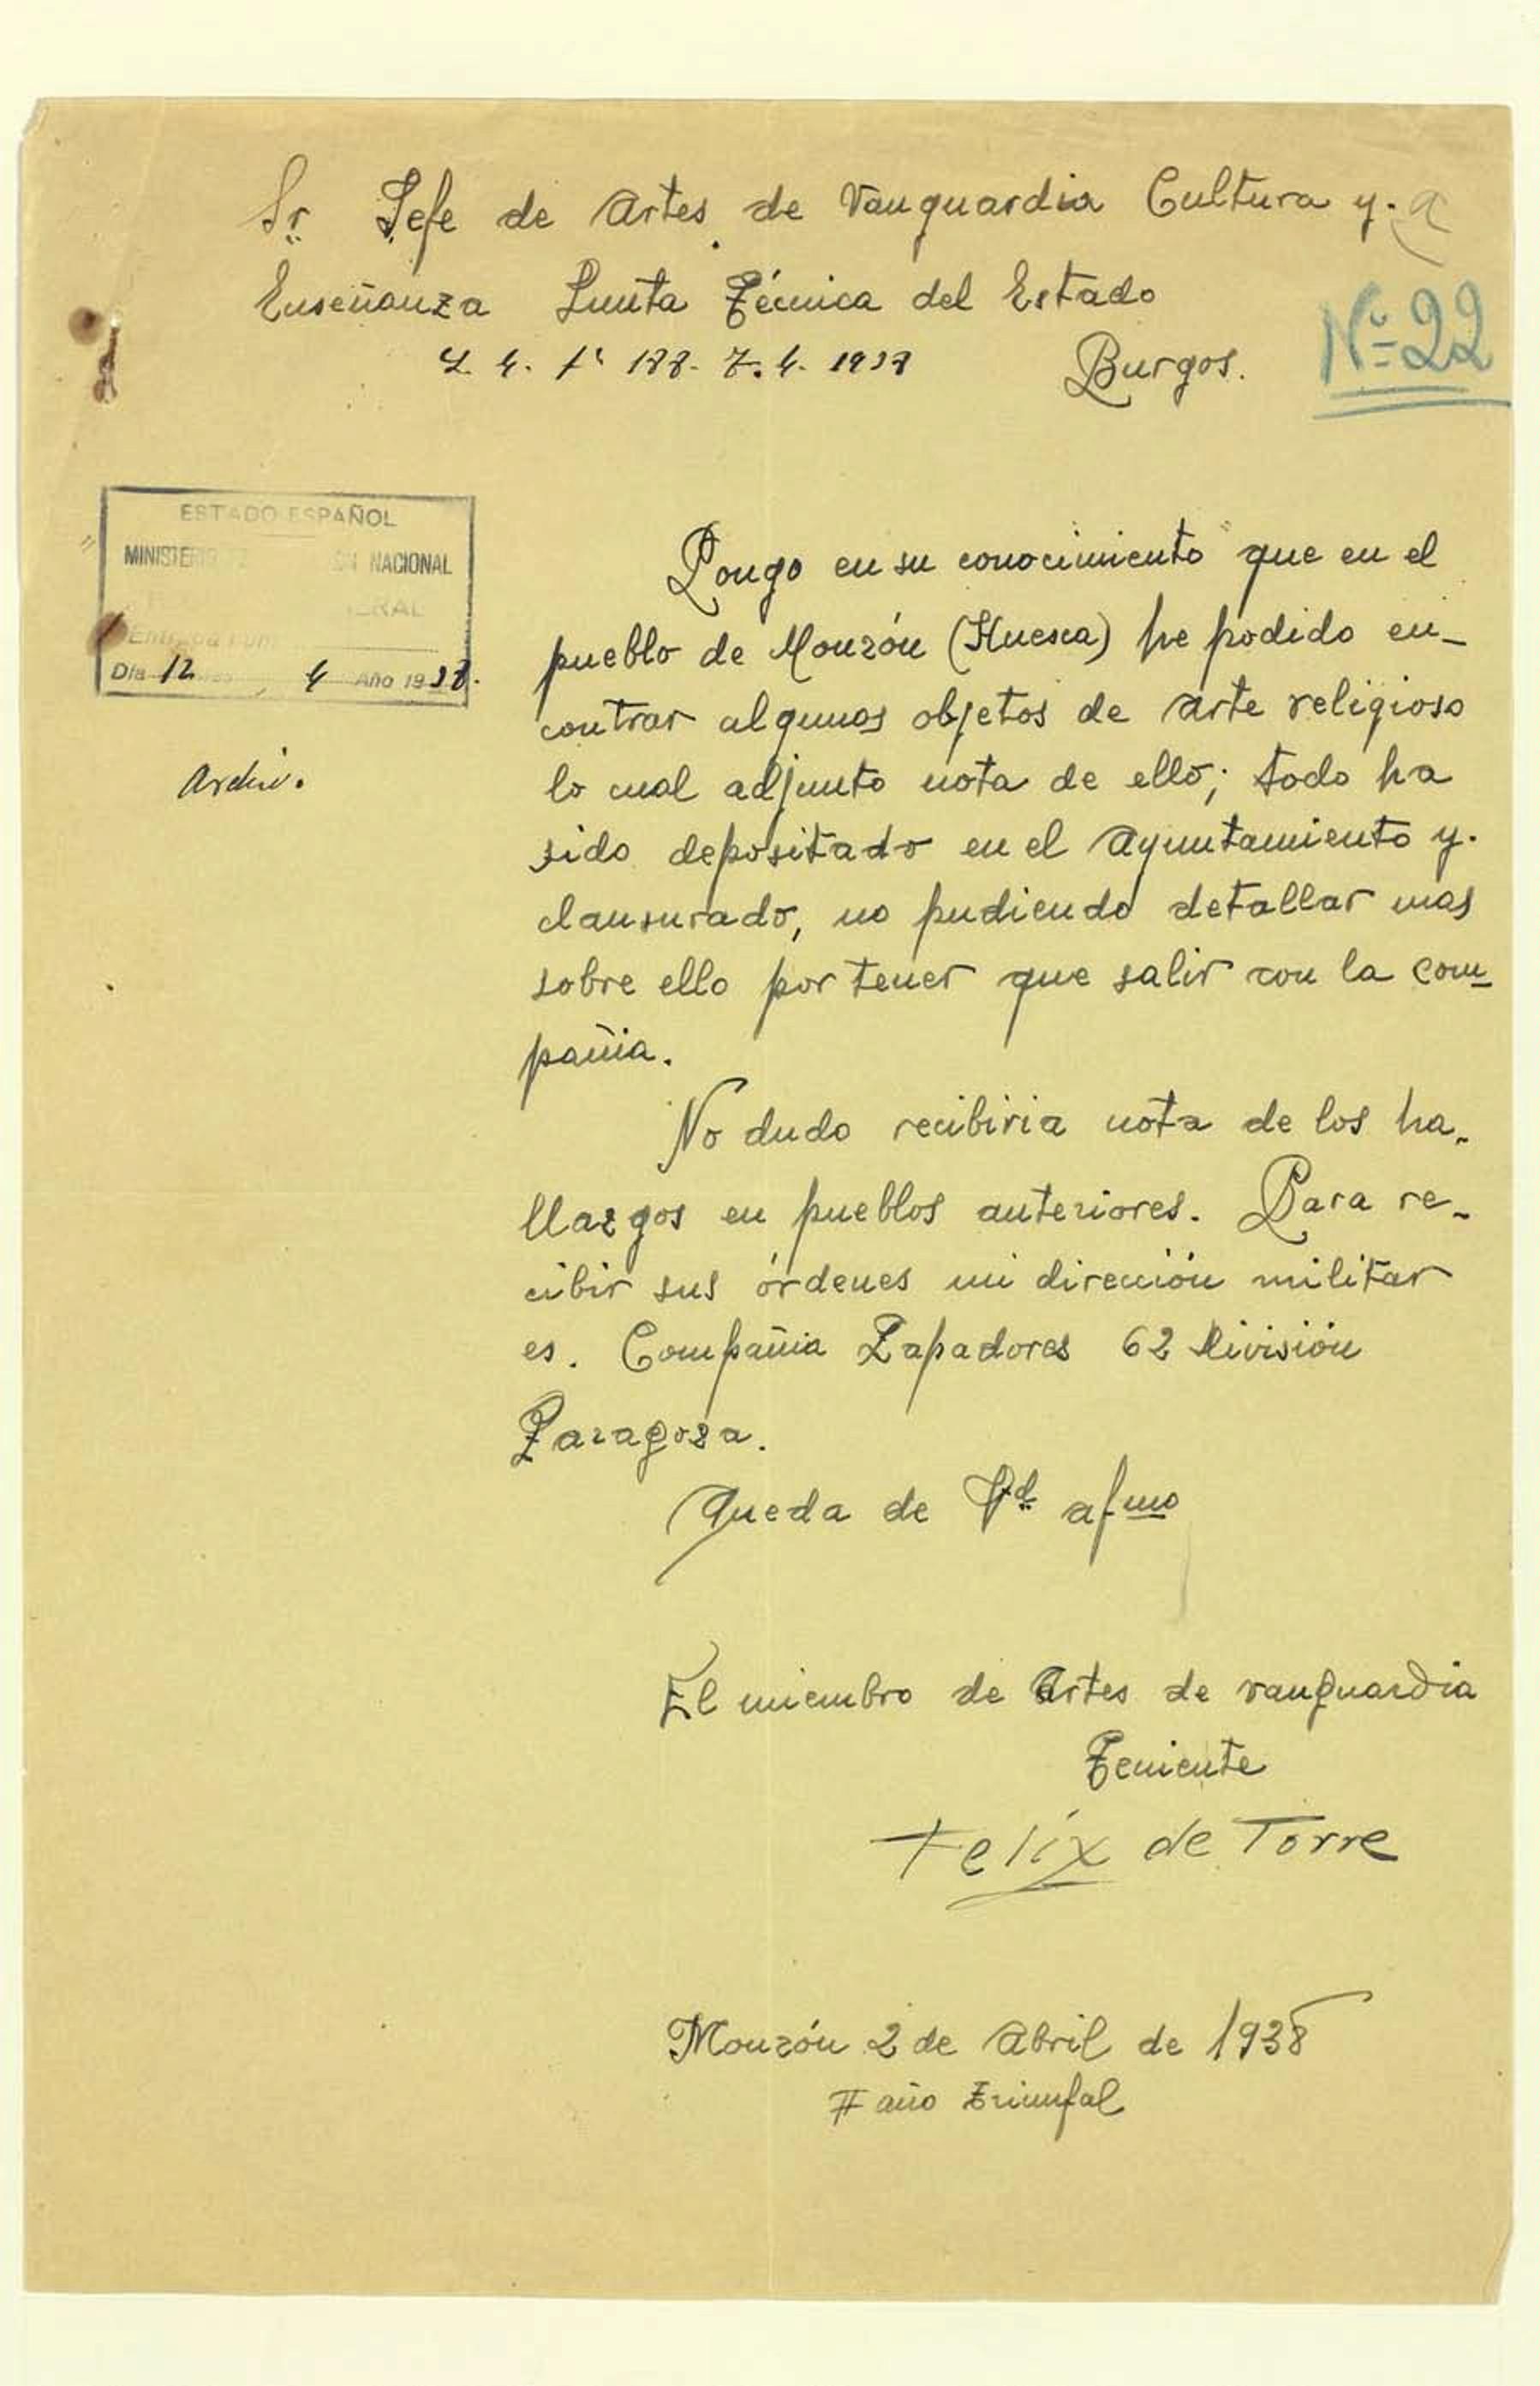 Sr. Jefe de Artes de Vanguardia Cultura y.
Enseñanza Junta Técnica del Estado
188. 7. 4. 1938
Burgos.
Nº 22
ESTADO ESPAÑOL
MINISTERIO NACIONAL
Día 12 4 Año 1938.
Archiv.
Pongo en su conocimiento que en el
pueblo de Monzón (Huesca) he podido en-
contrar algunos objetos de arte religioso
lo cual adjunto nota de ello; todo ha
sido depositado en el Ayuntamiento y.
clausurado, no pudiendo detallar mas
sobre ello por tener que salir con la com-
pañia.
No dudo recibiria nota de los ha-
llazgos en pueblos anteriores. Para re-
cibir sus órdenes mi dirección militar
es. Compañia Zapadores 62 División
Zaragoza.
Queda de Vd. afmo
El miembro de Artes de vanguardia
Teniente
Felix de Torre
Monzón 2 de Abril de 1938
II año Triunfal